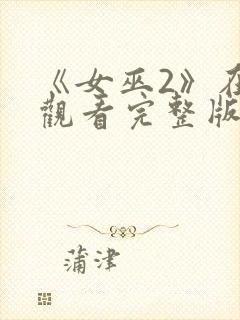 《女巫2》在
觀看完整版
蒲津